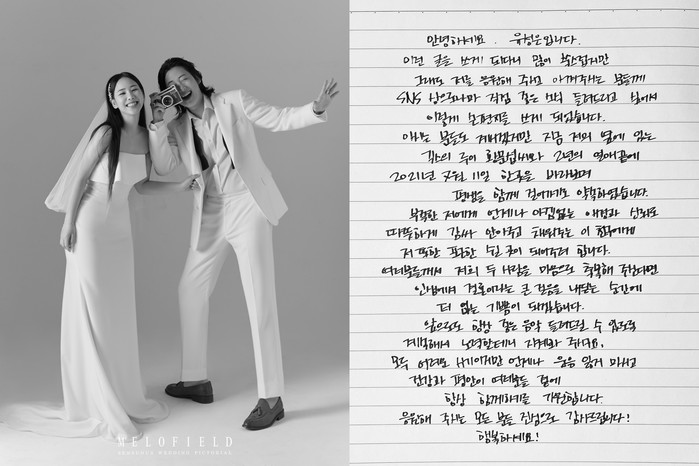 MELOFIELD
안녕하세요. 유성은입니다.
이런 글을 쓰게 되다니 많이 쑥스럽지만
그래도 저를 응원해 주고 아껴주는 분들께
SNS 상으로나마 직접 짧은 소식 들려드리고 싶어서
이렇게 손편지를 쓰게 되었습니다.
아시는 분들도 계시겠지만 지금 저의 옆에 있는
긱스의 루이 황문섭씨와 2년의 연애끝에
2021년 7월 11일 한곳을 바라보며
평생을 함께 걸어가기로 약속하였습니다.
부족한 저에게 언제나 아낌없는 애정과 신뢰로
따뜻하게 감싸 안아주고 채워주는 이 사람에게
저 또한 편안한 쉴 곳이 되어주려 합니다.
여러분들께서 저희 두 사람을 마음으로 축복해 주신다면
인생에서 결혼이라는 큰 걸음을 내딛는 순간에
더 없는 기쁨이 되겠습니다.
앞으로도 항상 좋은 음악 들려드릴 수 있도록
계속해서 노력할테니 지켜봐 주세요.
모두 어려운 시기이지만 언제나 웃음 잃지 마시고
건강과 평안이 여러분들 곁에
항상 함께하기를 기원합니다.
응원해 주시는 모든 분들 진심으로 감사드립니다!
행복하세요!